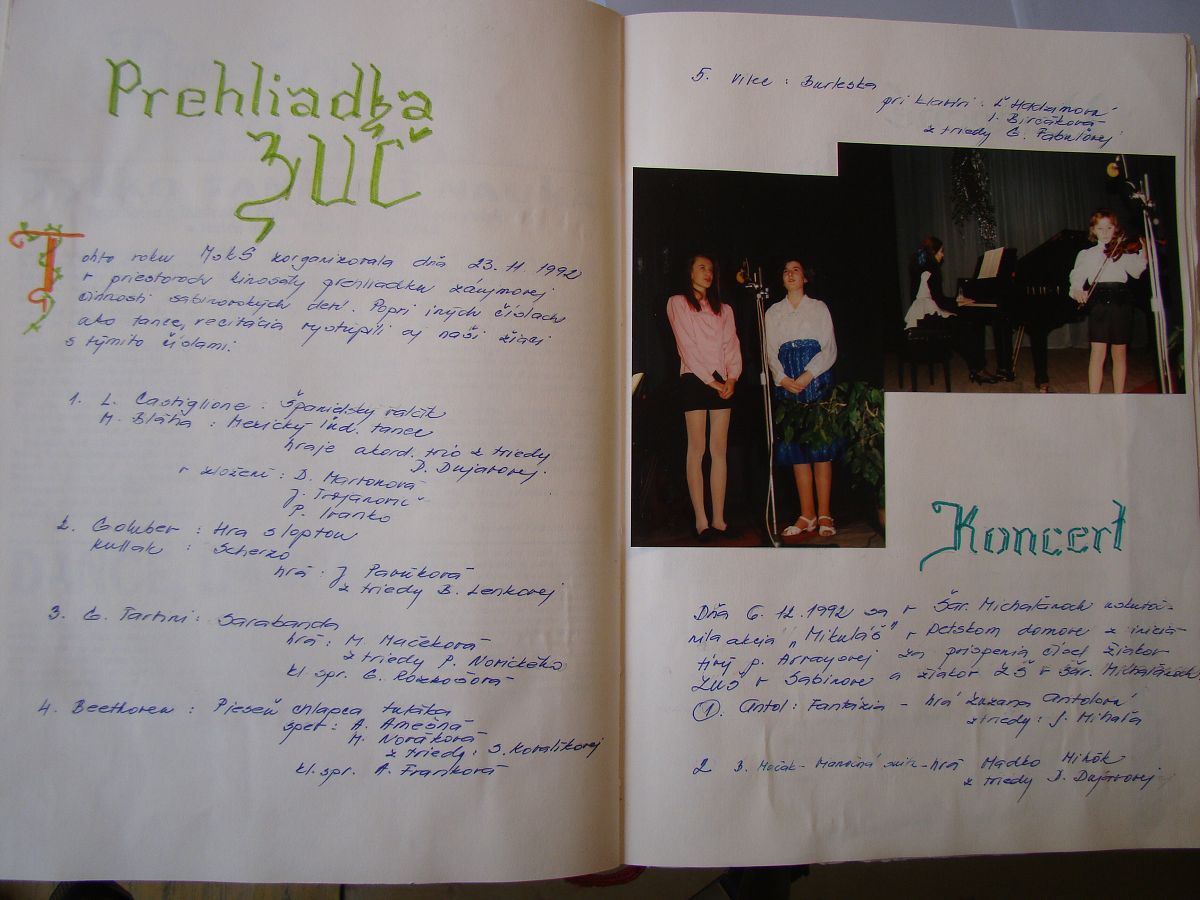 Prehliadka
ZUČ
Tohto roku MsKS zorganizovala dňa 23.11.1992
v priestoroch kinosály prehliadku záujmovej
činnosti sabinovských detí. Popri iných číslach
ako tance, recitácia vystúpili aj naši žiaci
s týmito číslami:
1. L. Castiglione : Španielsky valčík
M. Bláha : Mexický ind. tanec
hraje akord. trio z triedy
D. Dujavovej
v zložení : D. Martonová
J. Trojanovič
P. Ivanko
2. Goluber : Hra s loptou
Kullak : Scherzo
hrá : J. Pavúková
z triedy B. Lenkovej
3. G. Tartini : Sarabanda
hrá : M. Mačeková
z triedy P. Novického
kl. spr. G. Rozkošová
4. Beethoven : Pieseň chlapca tuláka
spev : A. Amešná
M. Nováková
z triedy : S. Kovalíkovej
kl. spr. A. Franková
5. Vilec : Burleska
pri klavíri : Ľ. Hadzamová
I. Birčáková
z triedy G. Fabuľovej
Koncert
Dňa 6.12.1992 sa v Šar. Michaľanoch uskutoč-
nila akcia "Mikuláš" v Detskom domove z inicia-
tívy p. Arrayovej za prispenia žiakov
ZUŠ v Sabinove a žiakov ZŠ v Šar. Michaľanoch.
1. Antol : Fantázia - hrá Zuzana Antolová
z triedy : J. Mihaľa
2 B. - hrá Hadko Mihók
z triedy D. Dujavovej